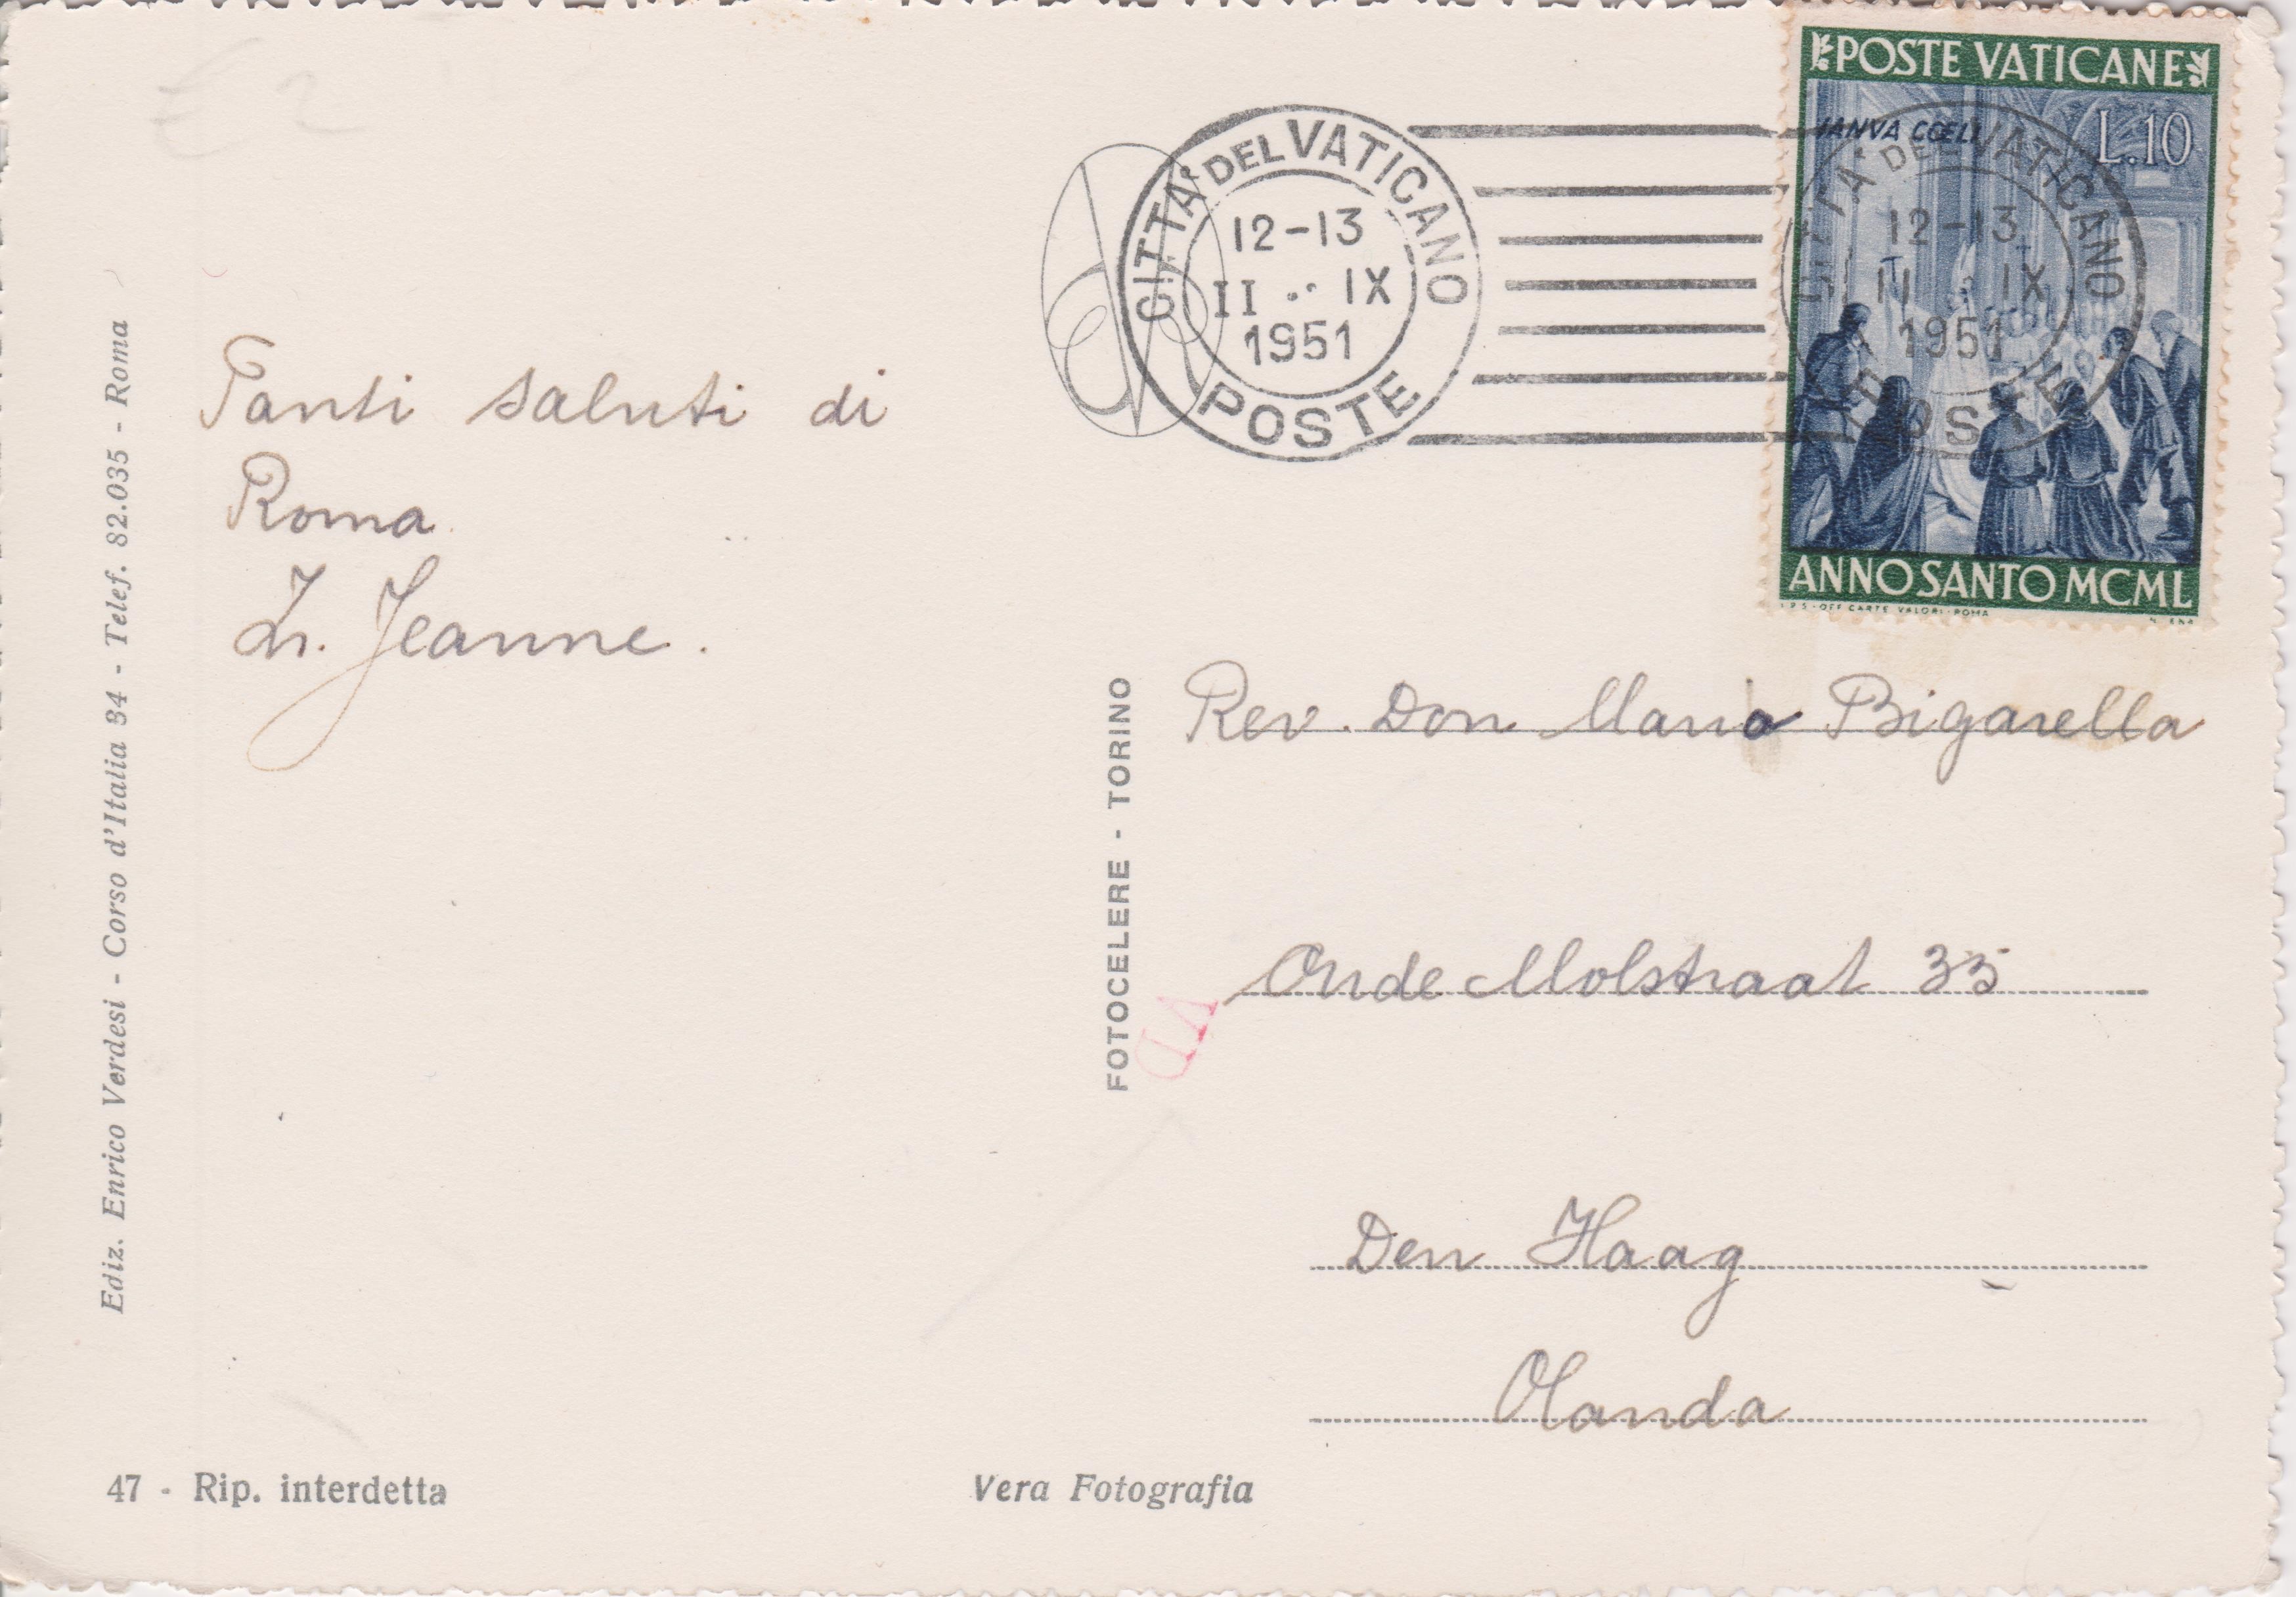 € 2
POSTE VATICANE
IANVA COELI
L.10
ANNO SANTO MCML
I.P.S.-OFF. CARTE VALORI-ROMA
CITTA' DEL VATICANO
12-13
II IX
1951
POSTE
CITTA' DEL VATICANO
12-13
II IX
1951
POSTE
Tanti saluti di
Roma
Zr. Jeanne.
Rev. Don Mario Bigarella
Oude Molstraat 35
Den Haag
Olanda
Ediz. Enrico Verdesi - Corso d'Italia 34 - Telef. 82.035 - Roma
FOTOCELERE - TORINO
47 - Rip. interdetta
Vera Fotografia